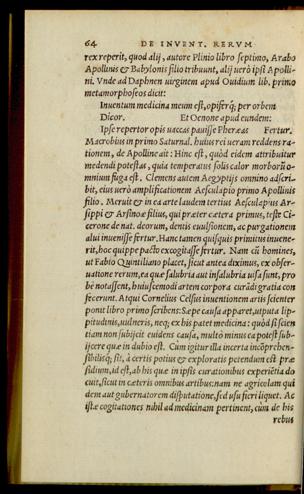 64 DE INVENT. RERVM
rex reperit, quod alij, autore Plinio libro septimo, Arabo
Apollinis & Babylonis filio tribuunt, alij uerò ipsi Apolli-
ni. Vnde ad Daphnen uirginem apud Ouidium lib. primo
metamorphoseos dicit:
Inuentum medicina meum est, opiferq́; per orbem
Dicor. Et Oenone apud eundem:
Ipse repertor opis uaccas pauisse Pheræas Fertur.
Macrobius in primo Saturnal. huius rei ueram reddens ra-
tionem, de Apolline ait: Hinc est, quòd eidem attribuitur
medendi potestas, quia temperatus solis calor morborũ o-
mnium fuga est. Clemens autem Aegyptijs omnino adscri-
bit, eius uerò amplificationem Aesculapio primo Apollinis
filio. Meruit & in ea arte laudem tertius Aesculapius Ar-
sippi & Arsinoæ filius, qui præter cætera primus, teste Ci-
cerone de nat. deorum, dentis euulsionem, ac purgationem
alui inuenisse fertur. Hanc tamen quisquis primitus inuene-
rit, hoc quippe pacto excogitasse fertur. Nam cũ homines,
ut Fabio Quintiliano placet, sicut antea diximus, ex obser-
uatione rerum, ea quæ salubria aut insalubria uisa sunt, pro
bè notassent, huiuscemodi artem corpora curãdi gratia con
fecerunt. Atqui Cornelius Celsus inuentionem artis scienter
ponit libro primo scribens: Sæpe causa apparet, ut puta lip-
pitudinis, uulneris, neq; ex his patet medicina: quòd si scien
tiam non subijcit euidens causa, multò minus ea potest sub-
ijcere quæ in dubio est. Cùm igitur illa incerta incõprehen-
sibilisq́; sit, à certis potius & exploratis petendum est præ
sidium, id est, ab his quæ in ipsis curationibus experiẽtia do
cuit, sicut in cæteris omnibus artibus: nam ne agricolam qui
dem aut gubernatorem disputatione, sed usu fieri liquet. Ac
istæ cogitationes nihil ad medicinam pertinent, cùm de his
rebus